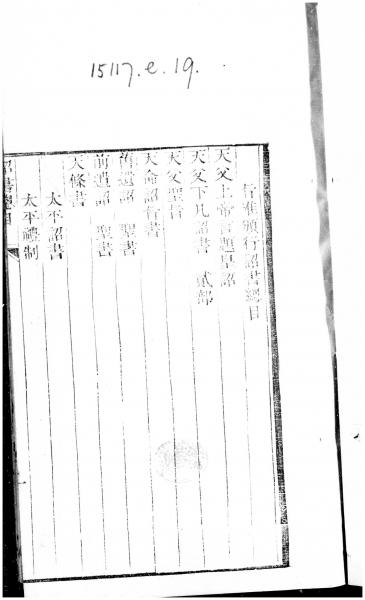 15117.e.19.
旨准頒行詔書總目
天父上帝言題皇詔
天父下凡詔書 貳部
天父聖書
天命詔旨書
舊遺詔 聖書
前遺詔 聖書
天條書
太平詔書
太平禮制
詔書總目